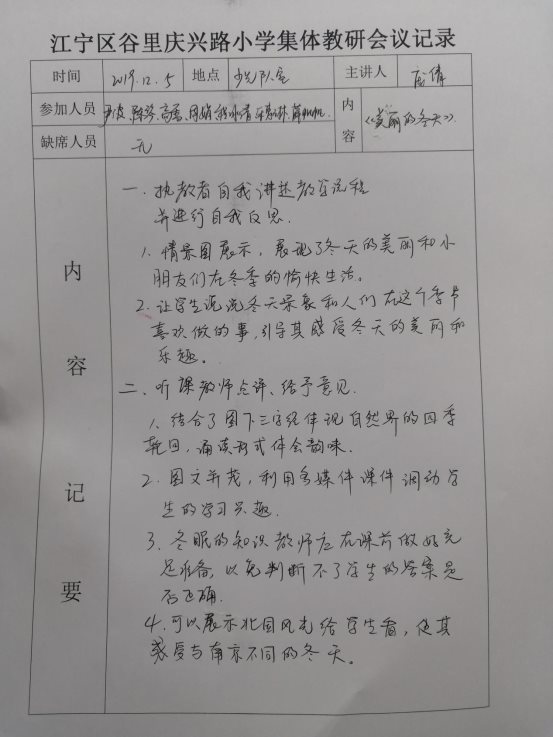 江宁区谷里庆兴路小学集体教研会议记录
时间 2019.12.5 地点 少先队室 主讲人 倩
参加人员 陈琴、高
内容 《美丽的冬天》
缺席人员 无
内容记要
一、执教者自我讲述教学流程
并进行自我反思.
1. 情景图展示，展现了冬天的美丽和小
朋友们在冬季的愉快生活。
2. 让学生说说冬天景象和人们在这个季节
喜欢做的事，引导其感受冬天的美丽和
乐趣。
二、听课教师点评、给予意见.
1、结合了图下三字经体现自然界的四季
轮回，诵读形式体会韵味.
2. 图文并茂，利用多媒体课件调动学
生的学习兴趣.
3、冬眠的知识教师应在课前做好充
足准备，以免判断不了学生的答案是
否正确.
4. 可以展示北国风光给学生看，使其
感受与南京不同的冬天。